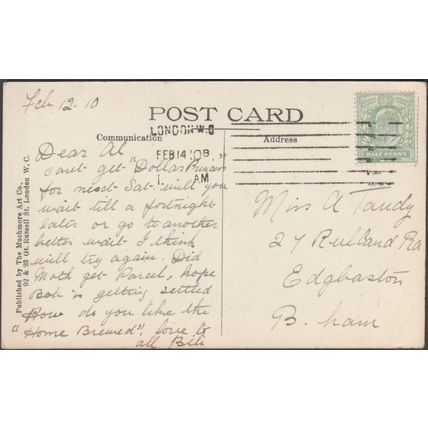 Feb 12. 10
POST CARD
Communication
Address
LONDON. W.C
FEB 14 10
AM
HALF PENNY
Dear Al
cant get "Dollar Princess"
for next Sat. will you
wait till a fortnight
later or go to another
better wait I think
will try again. Did
Moth get Parcel, hope
Bob is getting settled
How do you like the
"Home Brewed", love to
all
Miss A Tandy
27 Rutland Rd
Edgbaston
B. ham
Published by The Muchmore Art Co.
92 & 93 Gt. Russell St. London W.C.